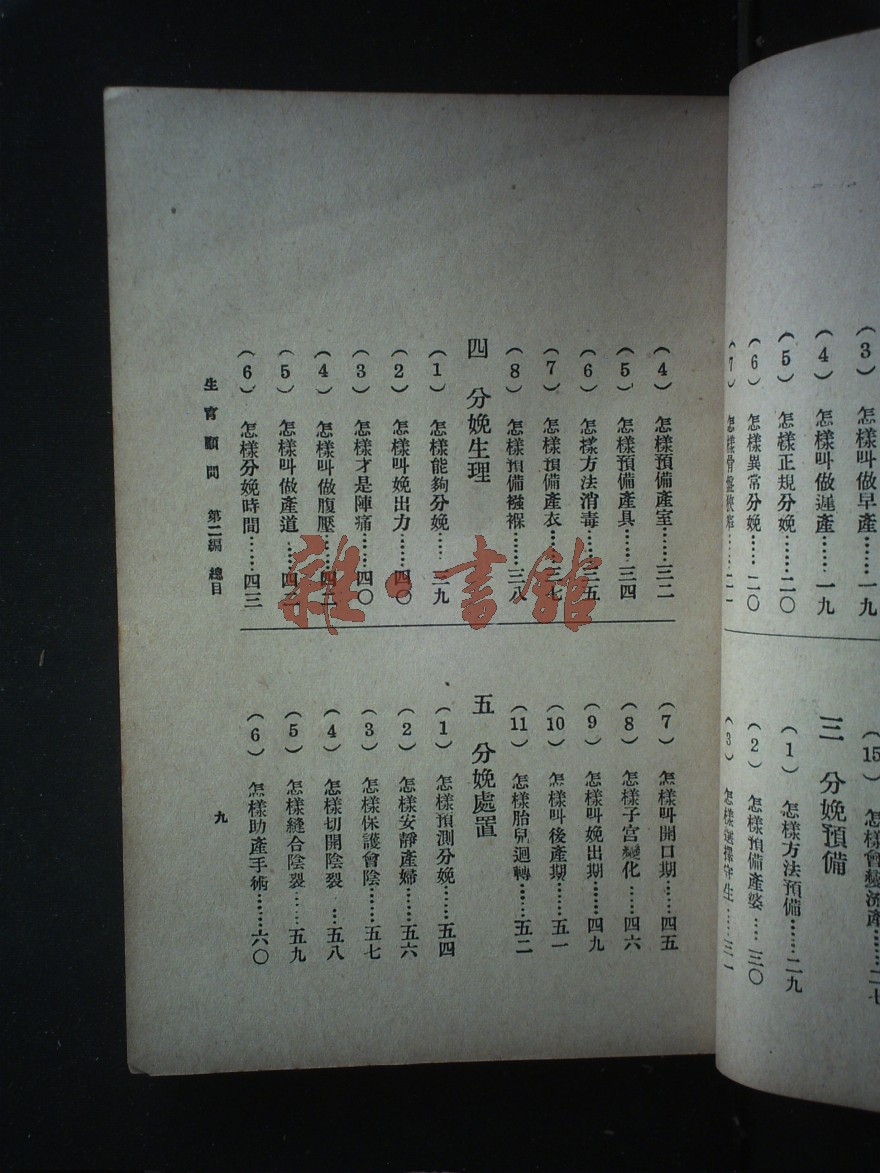 (3) 怎樣叫做早產……一九
(4) 怎樣叫做遲產……一九
(5) 怎樣正規分娩……二〇
(6) 怎樣異常分娩……二〇
(7) 怎樣骨盤
(15)
三 分娩預備
(1) 怎樣方法預備……二九
(2) 怎樣預備產婆……三〇
(3) 怎樣選擇
(4) 怎樣預備產室……三二
(5) 怎樣預備產具……三四
(6) 怎樣方法消毒……三五
(7) 怎樣預備產衣……三七
(8) 怎樣預備襁褓……三八
四 分娩生理
(1) 怎樣能夠分娩……三九
(2) 怎樣叫娩出力……四〇
(3) 怎樣才是陣痛……四〇
(4) 怎樣叫做腹壓……四二
(5) 怎樣叫做產道……四二
(6) 怎樣分娩時間……四三
(7) 怎樣叫開口期……四五
(8) 怎樣子宮變化……四六
(9) 怎樣叫娩出期……四九
(10) 怎樣叫後產期……五一
(11) 怎樣胎兒迴轉……五二
五 分娩處置
(1) 怎樣預測分娩……五四
(2) 怎樣安靜產婦……五六
(3) 怎樣保護會陰……五七
(4) 怎樣切開陰裂……五八
(5) 怎樣縫合陰裂……五九
(6) 怎樣助產手術……六〇
生育顧問 第二編 總目
九
雜·書館